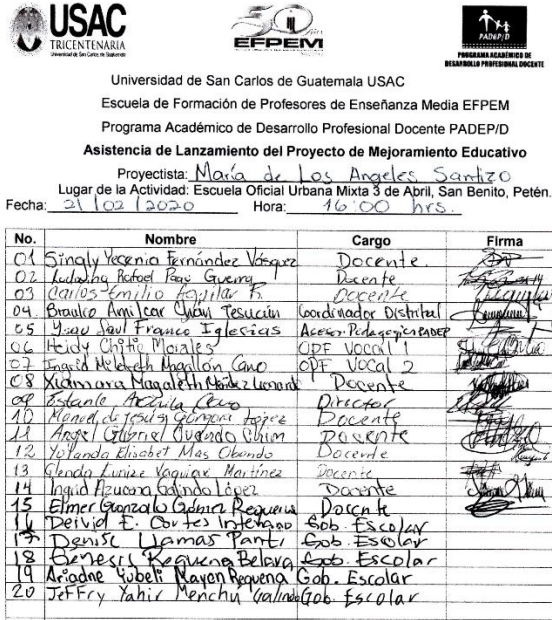 USAC
TRICENTENARIA
Universidad de San Carlos de Guatemala
50 Años
EFPEM
PADEP/D
PROGRAMA ACADÉMICO DE
DESARROLLO PROFESIONAL DOCENTE
Universidad de San Carlos de Guatemala USAC
Escuela de Formación de Profesores de Enseñanza Media EFPEM
Programa Académico de Desarrollo Profesional Docente PADEP/D
Asistencia de Lanzamiento del Proyecto de Mejoramiento Educativo
Proyectista: María de Los Angeles Santizo
Lugar de la Actividad: Escuela Oficial Urbana Mixta 3 de Abril, San Benito, Petén.
Fecha: 21/02/2020 Hora: 16:00 hrs.
No. Nombre Cargo Firma
01 Singly Yecenia Fernández Vásquez Docente
02 Rafael Guerra Docente
03 Carlos Emilio Aguilar Docente
04. Braulio Amilcar Chan Tesucún Coordinador Distrital
05 Saul Franco Iglesias Acesor Pedagogico PADEP
06 Heidy Morales OPF Vocal 1
07 Ingrid Magallon Cano OPF Vocal 2
08 Xiomara Magaleth Méndez Docente
09 Director
10 Manuel de Jesús Góngora López Docente
11 Angel Gabriel Chim Docente
12 Yolanda Elisabet Mas Obando Docente
13 Glenda Martínez Docente
14 Ingrid Azucena Galindo López Docente
15 Elmer Gonzalo Gómez Requena Docente
16 Deivid E. Cortes Gob. Escolar
17 Denise Llamas Panti Gob. Escolar
18 Génesis Requena Gob. Escolar
19 Ariadne Yubeli Mayen Requena Gob. Escolar
20 Jeffry Yahir Menchú Galindo Gob. Escolar